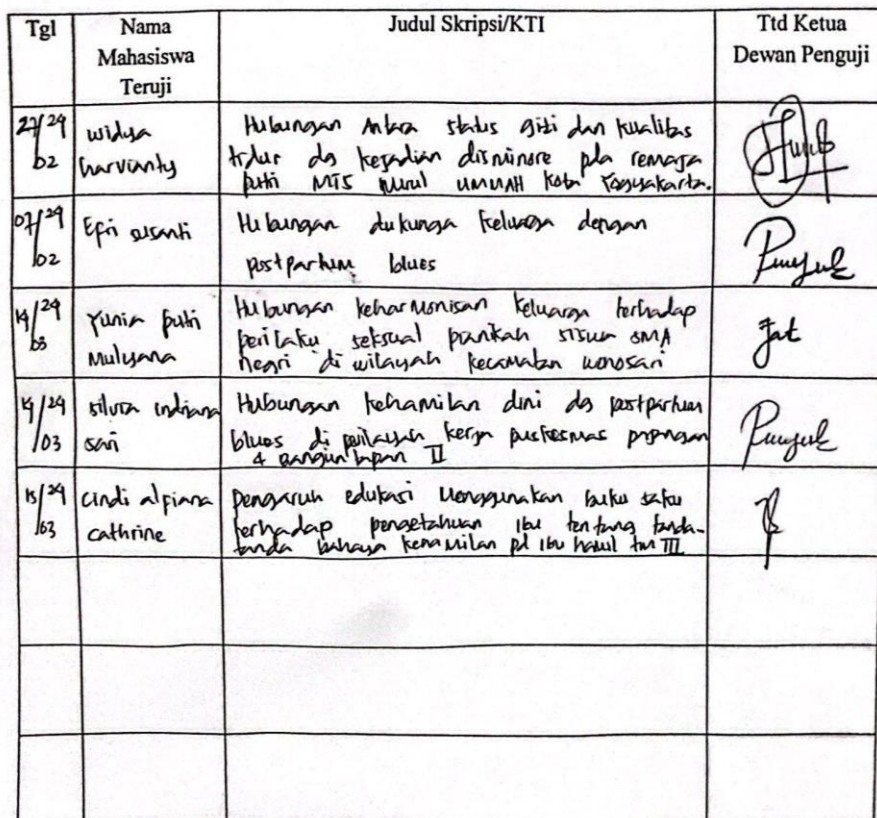 Tgl
Nama
Mahasiswa
Teruji
Judul Skripsi/KTI
Ttd Ketua
Dewan Penguji
27/24
02
widya
harvianty
Hubungan Antara status gizi dan kualitas
tidur dg kejadian disminore pda remaja
putri MTS Nurul UMMAH Kota Yogyakarta.
07/24
02
Epri susanti
Hubungan dukunga keluarga dengan
postpartum blues
14/24
03
Yunia putri
Mulyana
Hubungan keharmonisan keluarga terhadap
perilaku seksual pranikah siswa SMA
negri di wilayah kecamatan wonosari
14/24
03
silvia indriana
sari
Hubungan kehamilan dini dg postpartum
blues di wilayah kerja puskesmas
II
15/24
03
cindi alpiana
cathrine
pengaruh edukasi menggunakan buku saku
terhadap pengetahuan ibu tentang tanda-
tanda bahaya kehamilan pd ibu hamil tm III